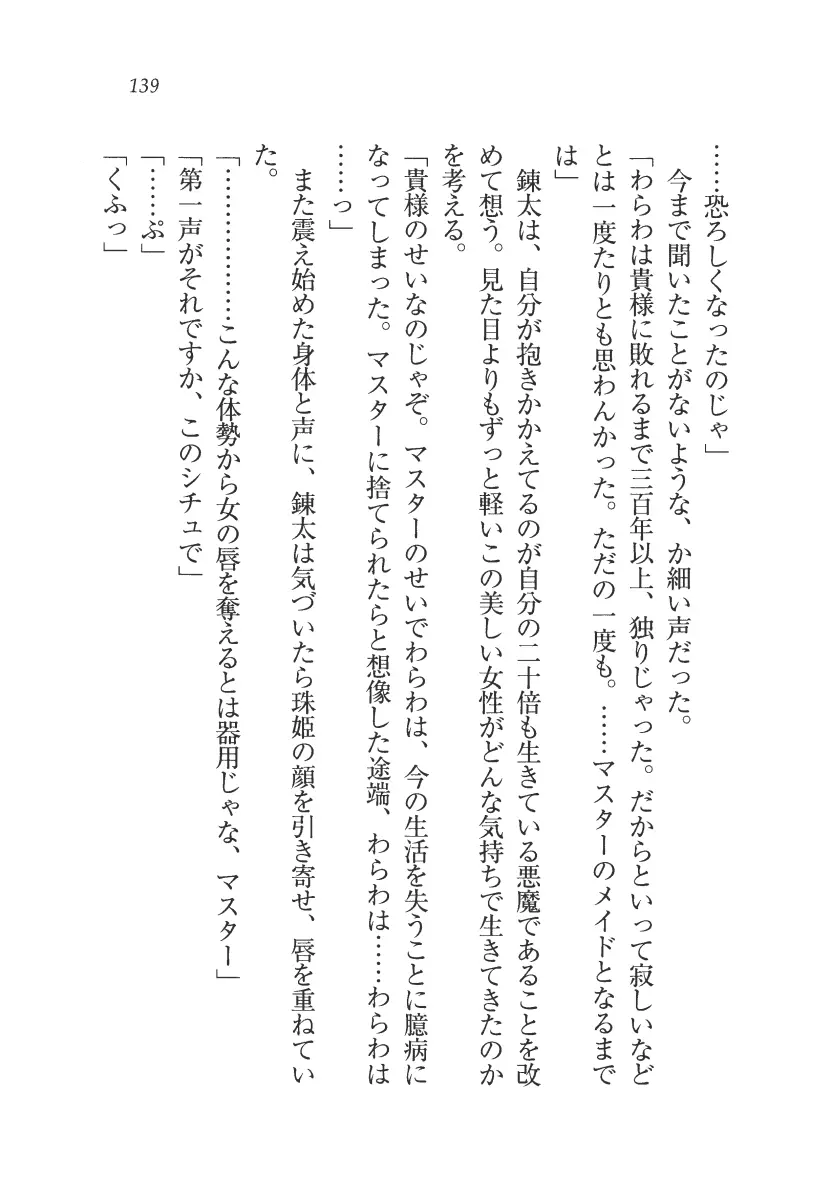 139
……恐ろしくなったのじゃ」
　今まで聞いたことがないような、か細い声だった。
「わらわは貴様に敗れるまで三百年以上、独りじゃった。だからといって寂しいなど
とは一度たりとも思わんかった。ただの一度も。……マスターのメイドとなるまで
は」
　錬太は、自分が抱きかかえてるのが自分の二十倍も生きている悪魔であることを改
めて想う。見た目よりもずっと軽いこの美しい女性がどんな気持ちで生きてきたのか
を考える。
「貴様のせいなのじゃぞ。マスターのせいでわらわは、今の生活を失うことに臆病に
なってしまった。マスターに捨てられたらと想像した途端、わらわは……わらわは
……っ」
　また震え始めた身体と声に、錬太は気づいたら珠姫の顔を引き寄せ、唇を重ねてい
た。
「…………………こんな体勢から女の唇を奪えるとは器用じゃな、マスター」
「第一声がそれですか、このシチュで」
「……ぷ」
「くふっ」